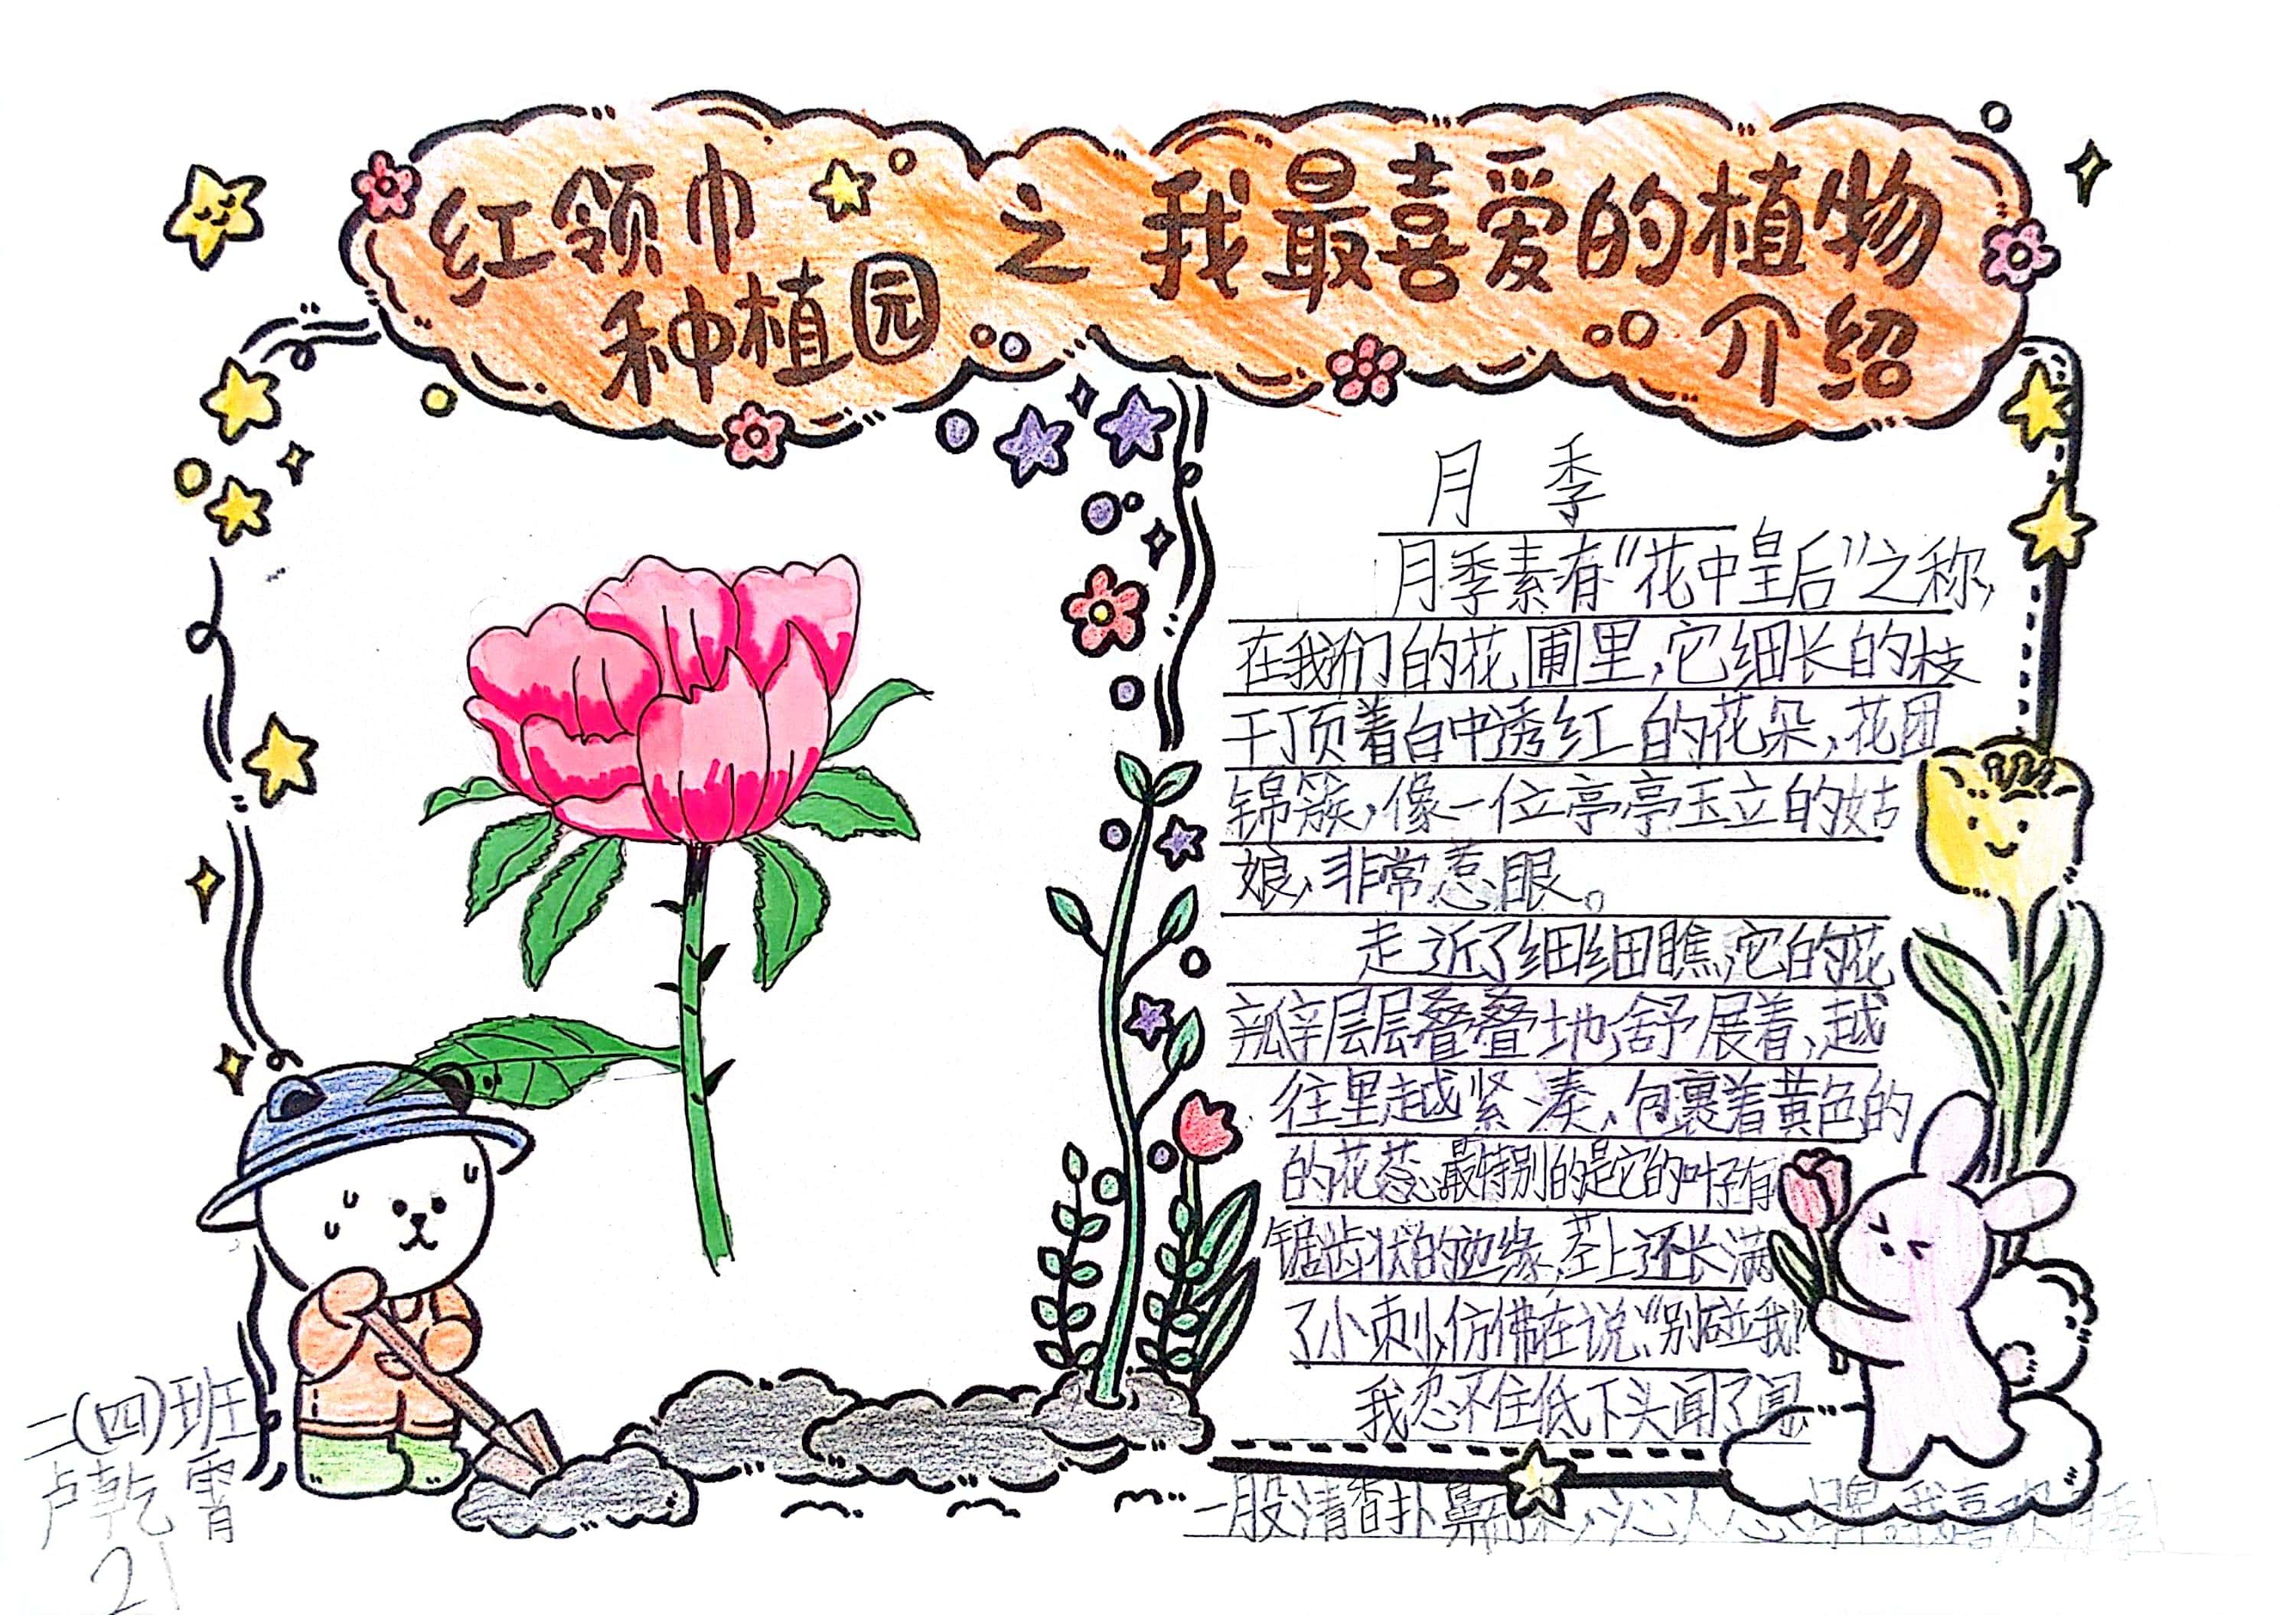 红领巾
种植园
之
我最喜爱的植物
介绍
月季
月季素有“花中皇后”之称,
在我们的花圃里,它细长的枝
干顶着白中透红的花朵,花团
锦簇,像一位亭亭玉立的姑
娘,非常惹眼。
走近了细细瞧,它的花
瓣层层叠叠地舒展着,越
往里越紧凑,包裹着黄色的
的花蕊。最特别的是它的叶子有
锯齿状的边缘,茎上还长满
了小刺,仿佛在说:“别碰我”
我忍不住低下头闻了闻
一股清香扑鼻而来,沁人心脾。我喜欢月季!
二(四)班
卢乾霄
21